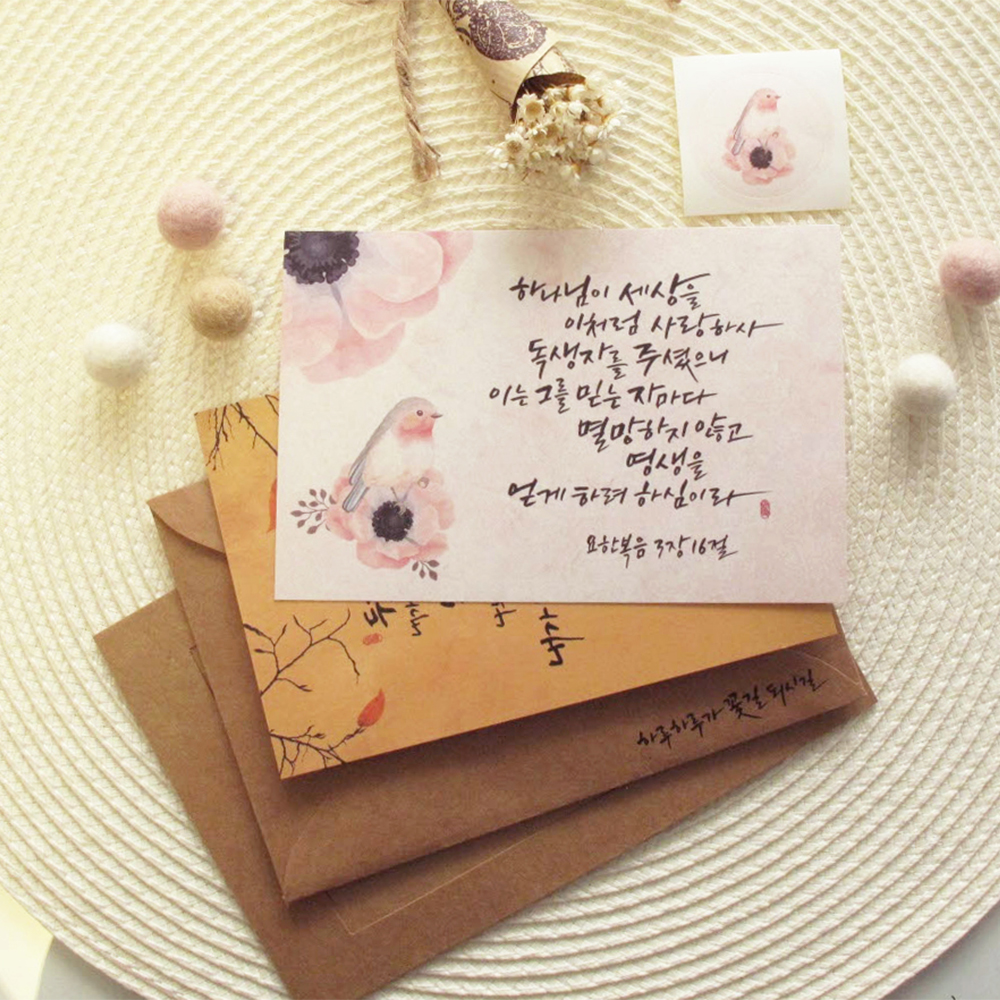 하나님이 세상을
이처럼 사랑하사
독생자를 주셨으니
이는 그를 믿는 자마다
멸망하지 않고
영생을
얻게 하려 하심이라
요한복음 3장 16절
하루하루가 꽃길 되시길